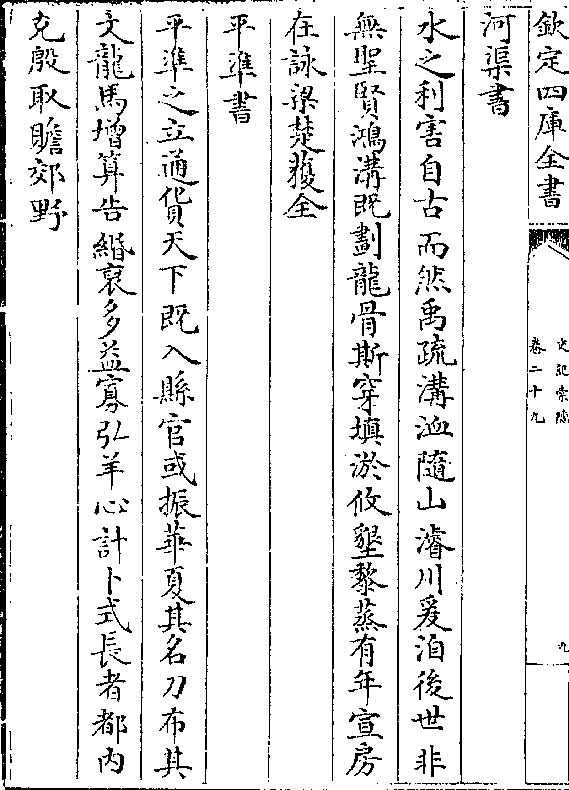 欽定四庫全書
史記索隱
卷二十九
九
河渠書
水之利害自古而然禹疏溝洫隨山濬川爰洎後世非
無聖賢鴻溝既劃龍骨斯穿填淤攸墾黎蒸有年宣房
在詠梁楚獲全
平準書
平準之立通貨天下既入縣官或振華夏其名刀布其
文龍馬增算告緡裒多益寡弘羊心計卜式長者都內
充殷取贍郊野